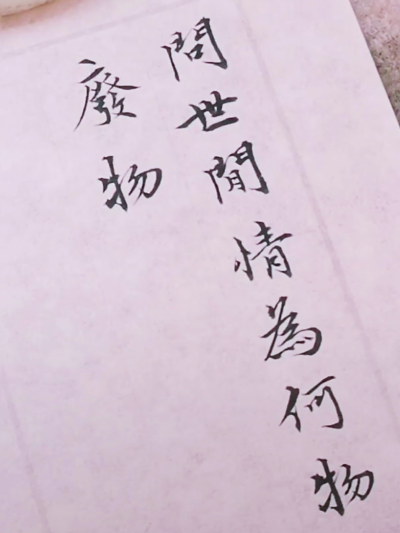 問世間情為何物
廢物